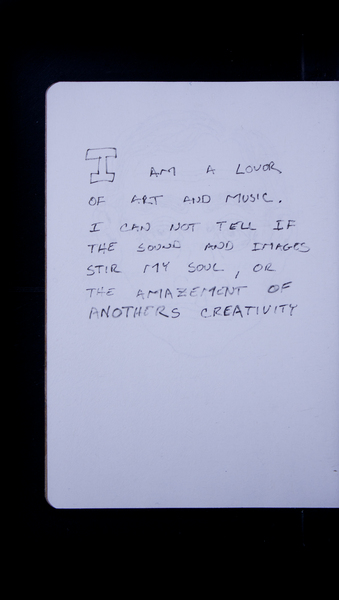 I AM A LOVOR
OF ART AND MUSIC.
I CAN NOT TELL IF
THE SOUND AND IMAGES
STIR MY SOUL, OR
THE AMAZEMENT OF
ANOTHERS CREATIVITY